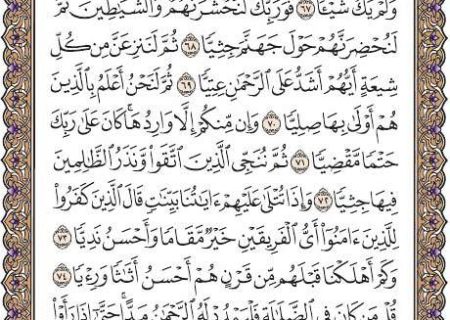 وَلَمْ يَكُ شَيْـًٔا ٦٧ فَوَرَبِّكَ لَنَحْشُرَنَّهُمْ وَٱلشَّيَٰطِينَ ثُمَّ
لَنُحْضِرَنَّهُمْ حَوْلَ جَهَنَّمَ جِثِيًّا ٦٨ ثُمَّ لَنَنزِعَنَّ مِن كُلِّ
شِيعَةٍ أَيُّهُمْ أَشَدُّ عَلَى ٱلرَّحْمَٰنِ عِتِيًّا ٦٩ ثُمَّ لَنَحْنُ أَعْلَمُ بِٱلَّذِينَ
هُمْ أَوْلَىٰ بِهَا صِلِيًّا ٧٠ وَإِن مِّنكُمْ إِلَّا وَارِدُهَا ۚ كَانَ عَلَىٰ رَبِّكَ
حَتْمًا مَّقْضِيًّا ٧١ ثُمَّ نُنَجِّى ٱلَّذِينَ ٱتَّقَوا۟ وَّنَذَرُ ٱلظَّٰلِمِينَ
فِيهَا جِثِيًّا ٧٢ وَإِذَا تُتْلَىٰ عَلَيْهِمْ ءَايَٰتُنَا بَيِّنَٰتٍ قَالَ ٱلَّذِينَ كَفَرُوا۟
لِلَّذِينَ ءَامَنُوٓا۟ أَىُّ ٱلْفَرِيقَيْنِ خَيْرٌ مَّقَامًا وَأَحْسَنُ نَدِيًّا ٧٣
وَكَمْ أَهْلَكْنَا قَبْلَهُم مِّن قَرْنٍ هُمْ أَحْسَنُ أَثَٰثًا وَرِءْيًا ٧٤
قُلْ مَن كَانَ فِى ٱلضَّلَٰلَةِ فَلْيَمْدُدْ لَهُ ٱلرَّحْمَٰنُ مَدًّا ۚ حَتَّىٰٓ إِذَا رَأَوْا۟